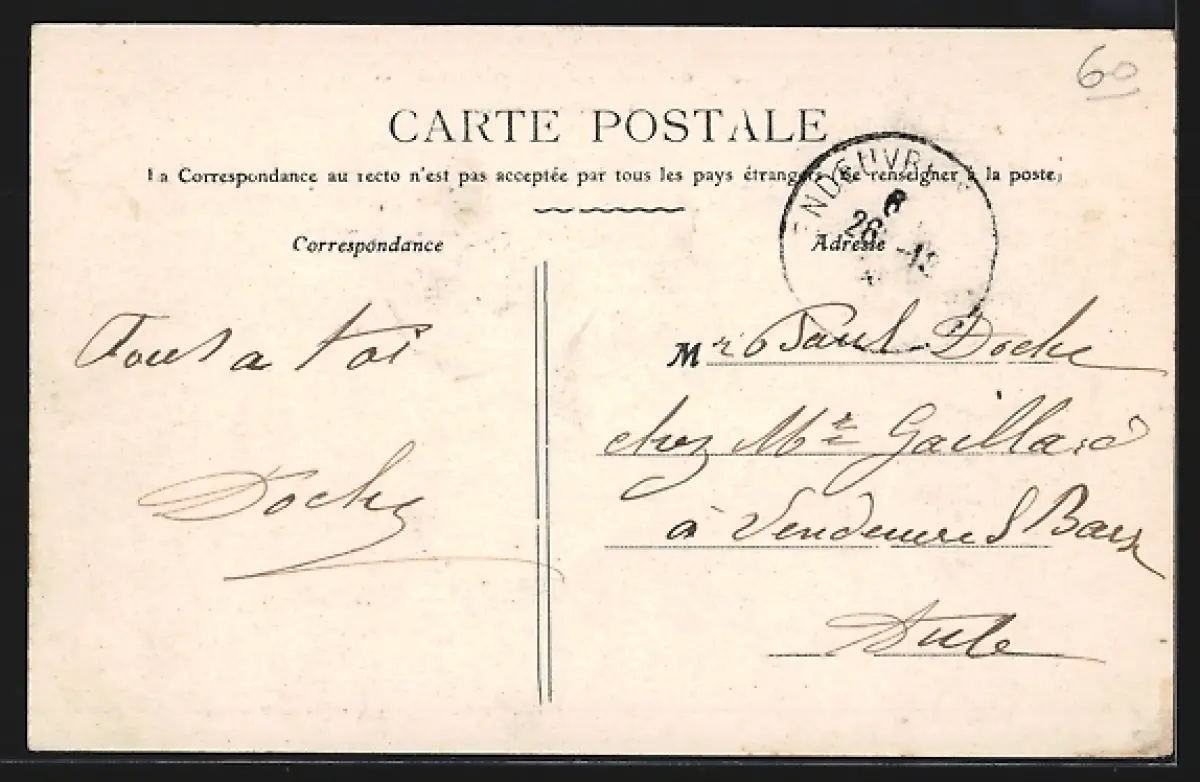 60
CARTE POSTALE
La Correspondance au recto n'est pas acceptée par tous les pays étrangers (Se renseigner à la poste)
ENDEUVR
8
26 -12
Correspondance
Adresse
Tout a toi
Doche
Mr Paul Doche
chez Mr Gaillard
à Vendeuvre S Barse
Aube